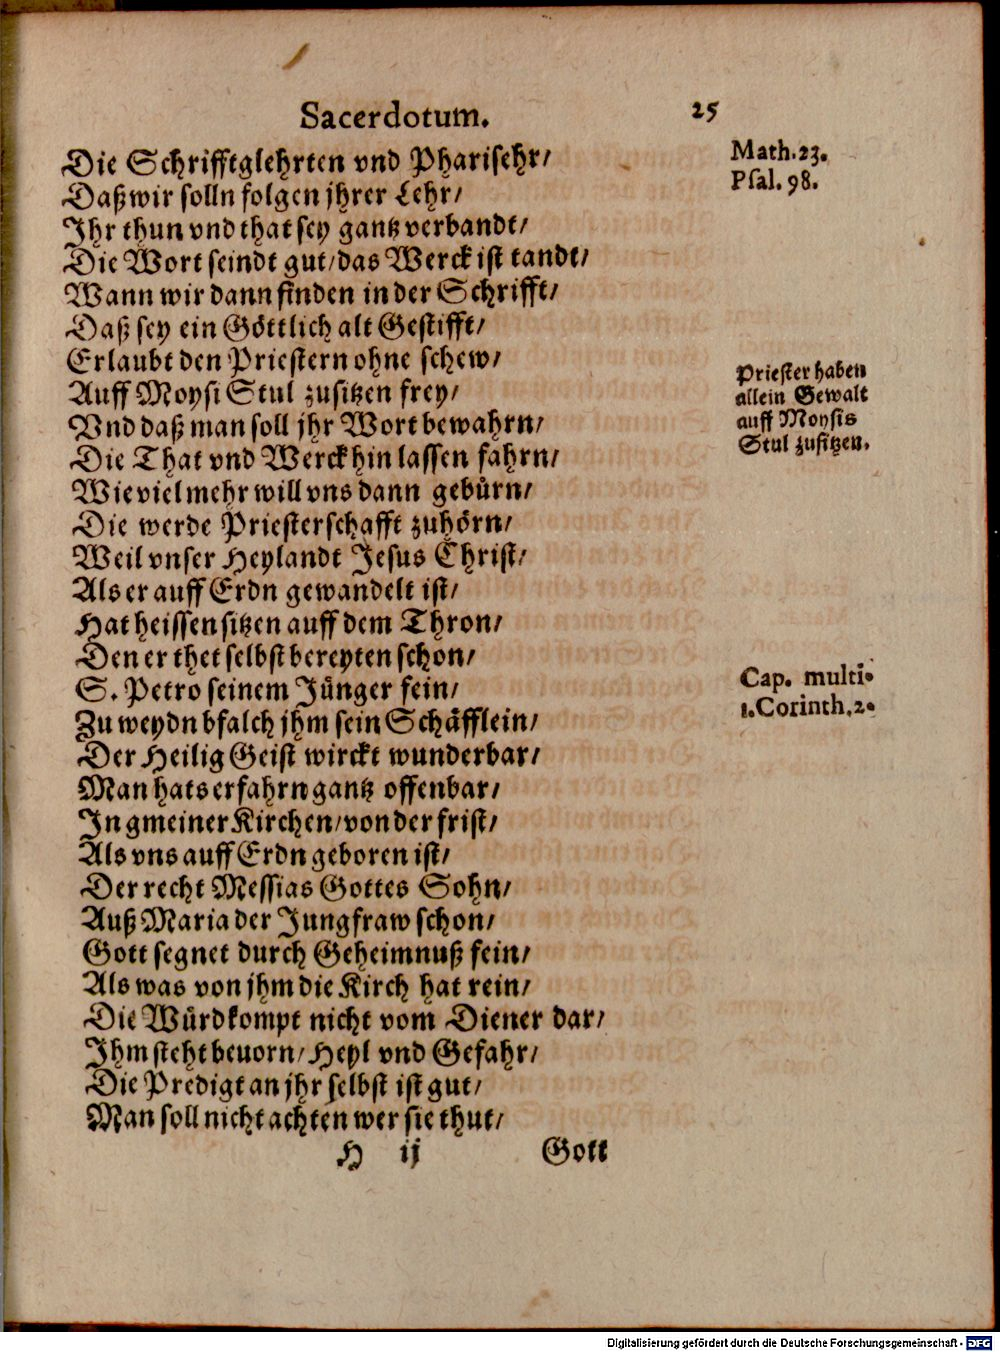 Sacerdotum. 25
Die Schrifftglehrten vnd Pharisehr/
Math.23.
Daß wir solln folgen jhrer Lehr/
Psal. 98.
Ihr thun vnd that sey gantz verbandt/
Die Wort seindt gut/das Werck ist tandt/
Wann wir dann finden in der Schrifft/
Daß sey ein Göttlich alt Gestifft/
Erlaubt den Priestern ohne schew/
Auff Moysi Stul zusitzen frey/
Priester haben
allein Gewalt
auff Moysis
Stul zusitzen.
Vnd daß man soll jhr Wort bewahrn/
Die That vnd Werck hin lassen fahrn/
Wie viel mehr will vns dann gebürn/
Die werde Priesterschafft zuhörn/
Weil vnser Heylandt Jesus Christ/
Als er auff Erdn gewandelt ist/
Hat heissen sitzen auff dem Thron/
Den er thet selbst bereyten schon/
S. Petro seinem Jünger fein/
Cap. multi.
1.Corinth.2.
Zu weydn bfalch jhm sein Schäfflein/
Der Heilig Geist wirckt wunderbar/
Man hats erfahrn gantz offenbar/
In gmeiner Kirchen/von der frist/
Als vns auff Erdn geboren ist/
Der recht Messias Gottes Sohn/
Auß Maria der Jungfraw schon/
Gott segnet durch Geheimnuß fein/
Als was von jhm die Kirch hat rein/
Die Würd kompt nicht vom Diener dar/
Ihm steht beuorn/Heyl vnd Gefahr/
Die Predigt an jhr selbst ist gut/
Man soll nicht achten wer sie thut/
H ij Gott
Digitalisierung gefördert durch die Deutsche Forschungsgemeinschaft - DFG